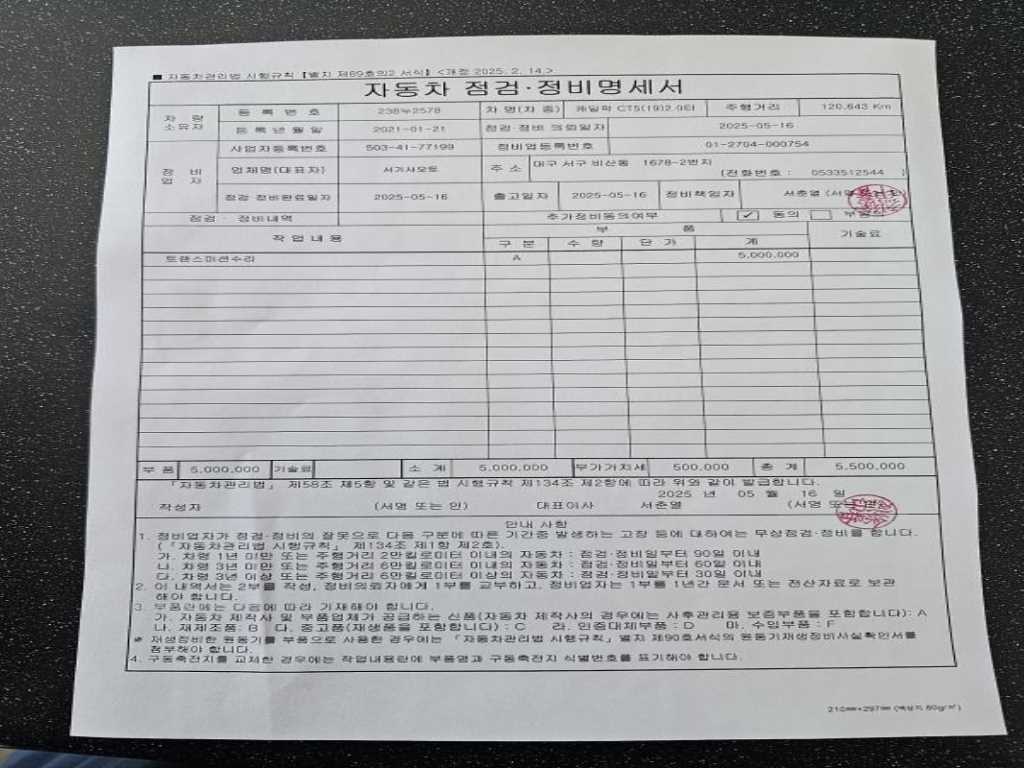 ■ 자동차관리법 시행규칙 [별지 제89호의2 서식] <개정 2025. 2. 14.>
자동차 점검·정비명세서
차 량 소유자
등 록 번 호 238누2578 차 명(차 종) 캐딜락 CT5(19)2.0터 주행거리 120,643 Km
등 록 년 월 일 2021-01-21 점검·정비 의뢰일자 2025-05-16
정 비 업 자
사업자등록번호 503-41-77199 정비업등록번호 01-2704-000754
업체명(대표자) 서기사모토 주 소 대구 서구 비산동 1678-2번지
(전화번호 : 0533512544 )
점검·정비완료일자 2025-05-16 출고일자 2025-05-16 정비책임자 서준열 (서명
점검· 정비내역 추가정비동의여부 ✓ 동의
작 업 내 용 부 품 기술료
구 분 수 량 단 가 계
트랜스미션수리 A 5,000,000
부 품 5,000,000 기술료 소 계 5,000,000 부가가치세 500,000 총 계 5,500,000
「자동차관리법」 제58조 제5항 및 같은 법 시행규칙 제134조 제2항에 따라 위와 같이 발급합니다.
2025 년 05 월 16 일
작성자 (서명 또는 인) 대표이사 서준열 (서명 또는
안내 사항
1. 정비업자가 점검·정비의 잘못으로 다음 구분에 따른 기간중 발생하는 고장 등에 대하여는 무상점검·정비를 합니다.
(「자동차관리법 시행규칙」 제134조 제1항 제2호).
가. 차령 1년 미만 또는 주행거리 2만킬로미터 이내의 자동차 : 점검·정비일부터 90일 이내
나. 차령 3년 미만 또는 주행거리 6만킬로미터 이내의 자동차 : 점검·정비일부터 60일 이내
다. 차령 3년 이상 또는 주행거리 6만킬로미터 이상의 자동차 : 점검·정비일부터 30일 이내
2. 이 내역서는 2부를 작성, 정비의뢰자에게 1부를 교부하고, 정비업자는 1부를 1년간 문서 또는 전산자료로 보관
해야 합니다.
3. 부품란에는 다음에 따라 기재해야 합니다.
가. 자동차 제작사 및 부품업체가 공급하는 신품(자동차 제작사의 경우에는 사후관리용 보증부품을 포함합니다): A
나. 재제조품: B 다. 중고품(재생품을 포함합니다) : C 라. 인증대체부품 : D 마. 수입부품 : F
* 재생정비한 원동기를 부품으로 사용한 경우에는 「자동차관리법 시행규칙」별지 제90호서식의 원동기재생정비사실확인서를
첨부해야 합니다.
4. 구동축전지를 교체한 경우에는 작업내용란에 부품명과 구동축전지 식별번호를 표기해야 합니다.
210㎜×297㎜ (백상지 80g/㎡)